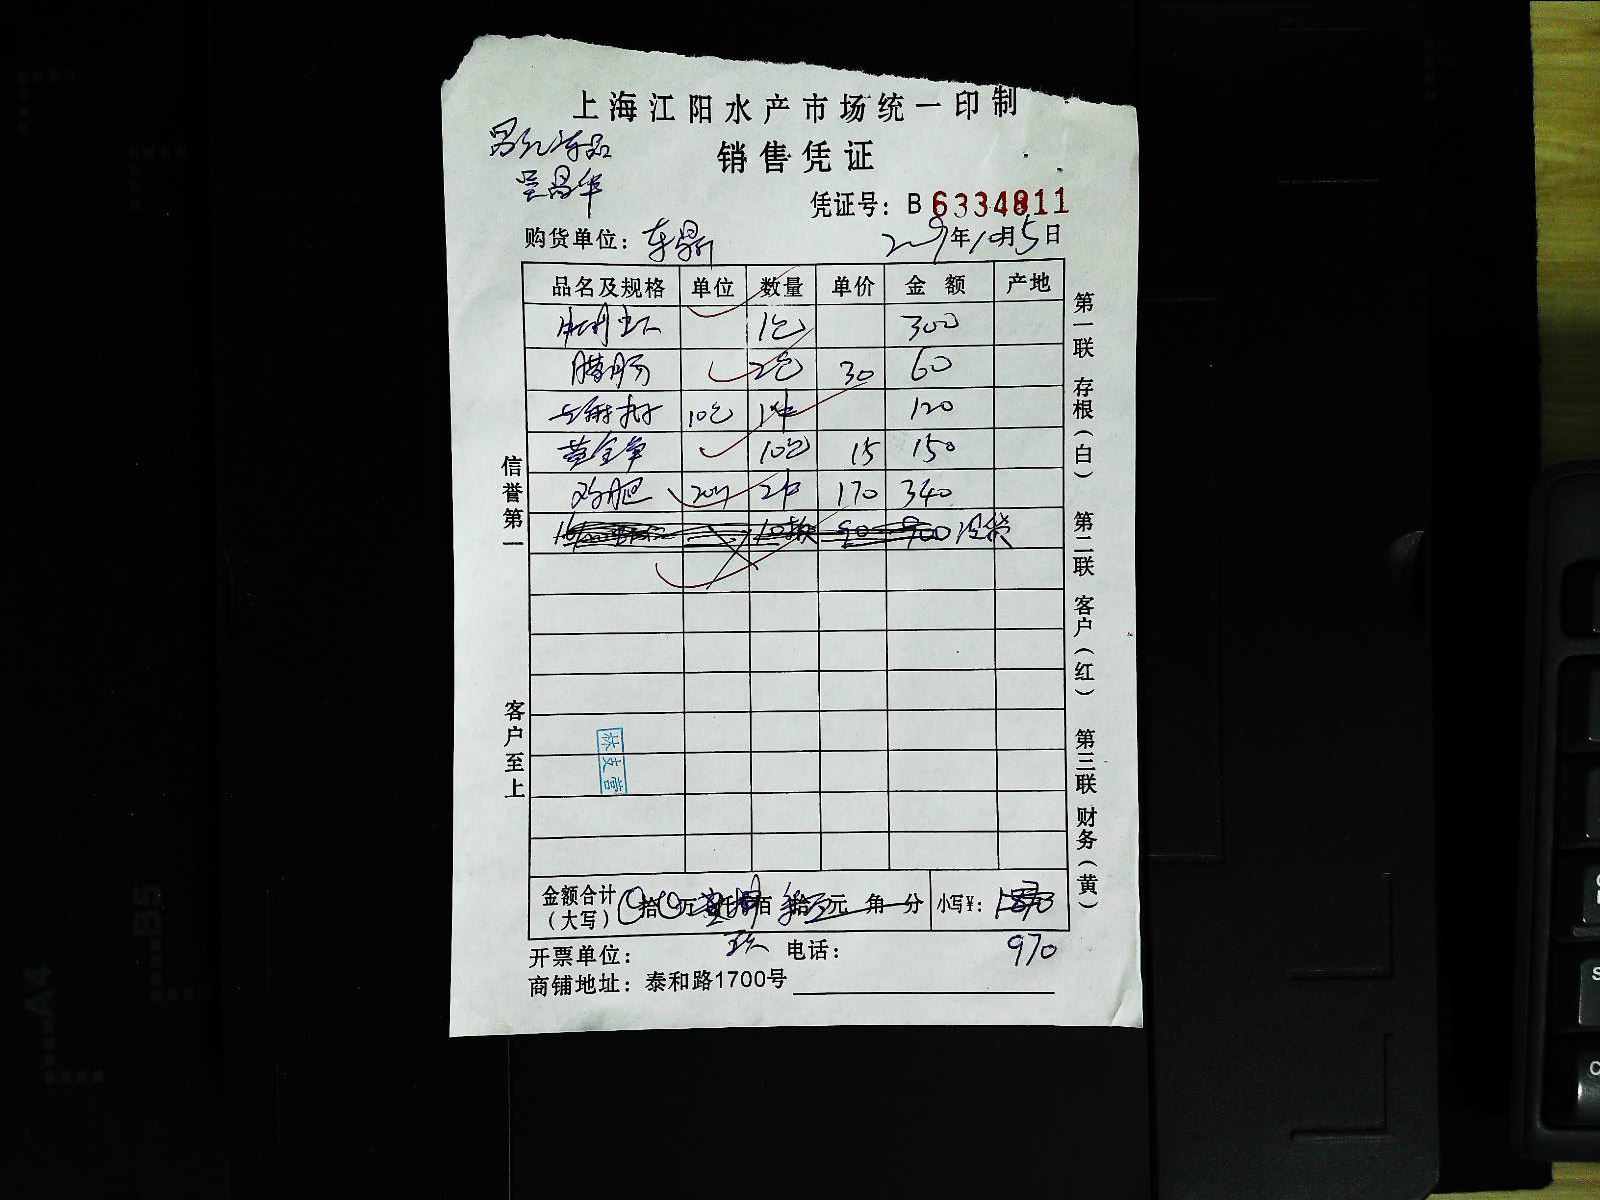 上海江阳水产市场统一印制
销售凭证
吴昌华
凭证号: B 6334811
购货单位:
2009年10月5日
品名及规格 单位 数量 单价 金额 产地
1包 300
腊肠 2包 30 60
10包 1件 120
黄金笋 10包 15 150
鸡肥 2件 170 340
90 900 没货
信誉第一
客户至上
第一联 存根(白) 第二联 客户(红) 第三联 财务(黄)
金额合计(大写) 拾 万 仟 佰 拾 元 角 分 小写¥:
970
开票单位: 电话:
商铺地址: 泰和路1700号